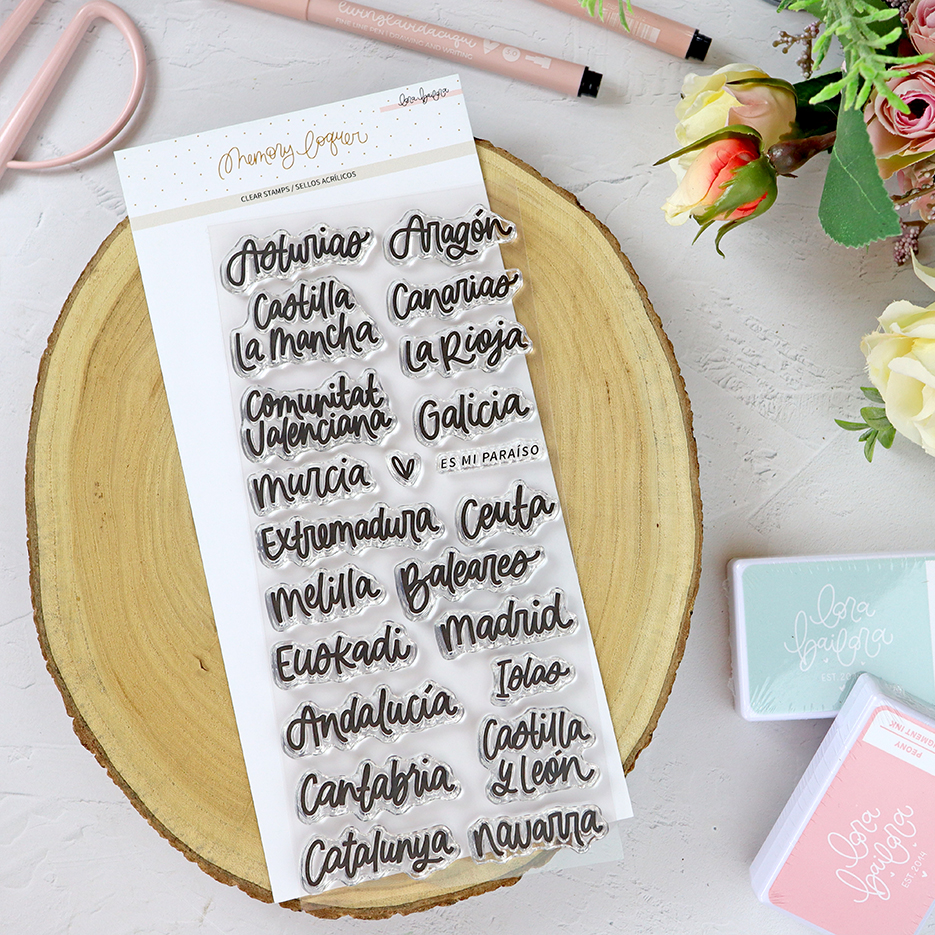 livinglavidacuqui
FINE LINE PEN | DRAWING AND WRITING
lora bailora
memory loquer
CLEAR STAMPS / SELLOS ACRÍLICOS
Asturias
Aragón
Castilla
La Mancha
Canarias
La Rioja
Comunitat
Valenciana
Galicia
Murcia
ES MI PARAÍSO
Extremadura
Ceuta
Melilla
Baleares
Madrid
Euskadi
Islas
Andalucía
Castilla
y León
Cantabria
Catalunya
Navarra
lora
bailora
EST. 2014
PEONY
PIGMENT INK
lora
bailora
EST. 2014